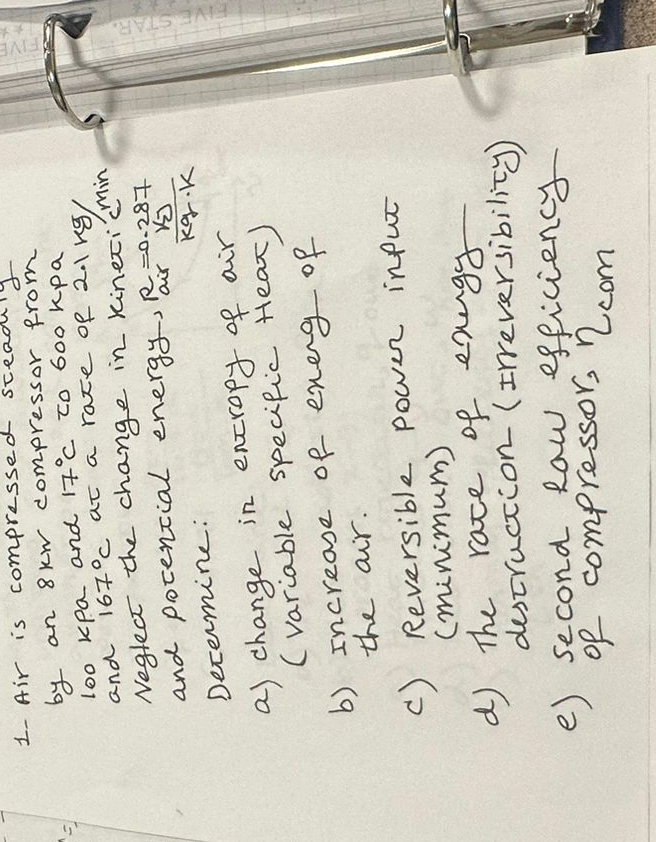 1- Air is compressed steadily
by an 8 kw compressor from
100 kpa and 17°C to 600 kpa
and 167°C at a rate of 2.1 kg/min
Neglect the change in kinetic
and potential energy, Rair = 0.287 kJ/kg.K
Determine:
a) change in entropy of air
(variable specific Heat)
b) Increase of exergy of
the air.
c) Reversible power input
(minimum)
d) The rate of exergy
destruction (Irreversibility)
e) Second Law efficiency
of compressor, ηcom
FIVE STAR
FIVE